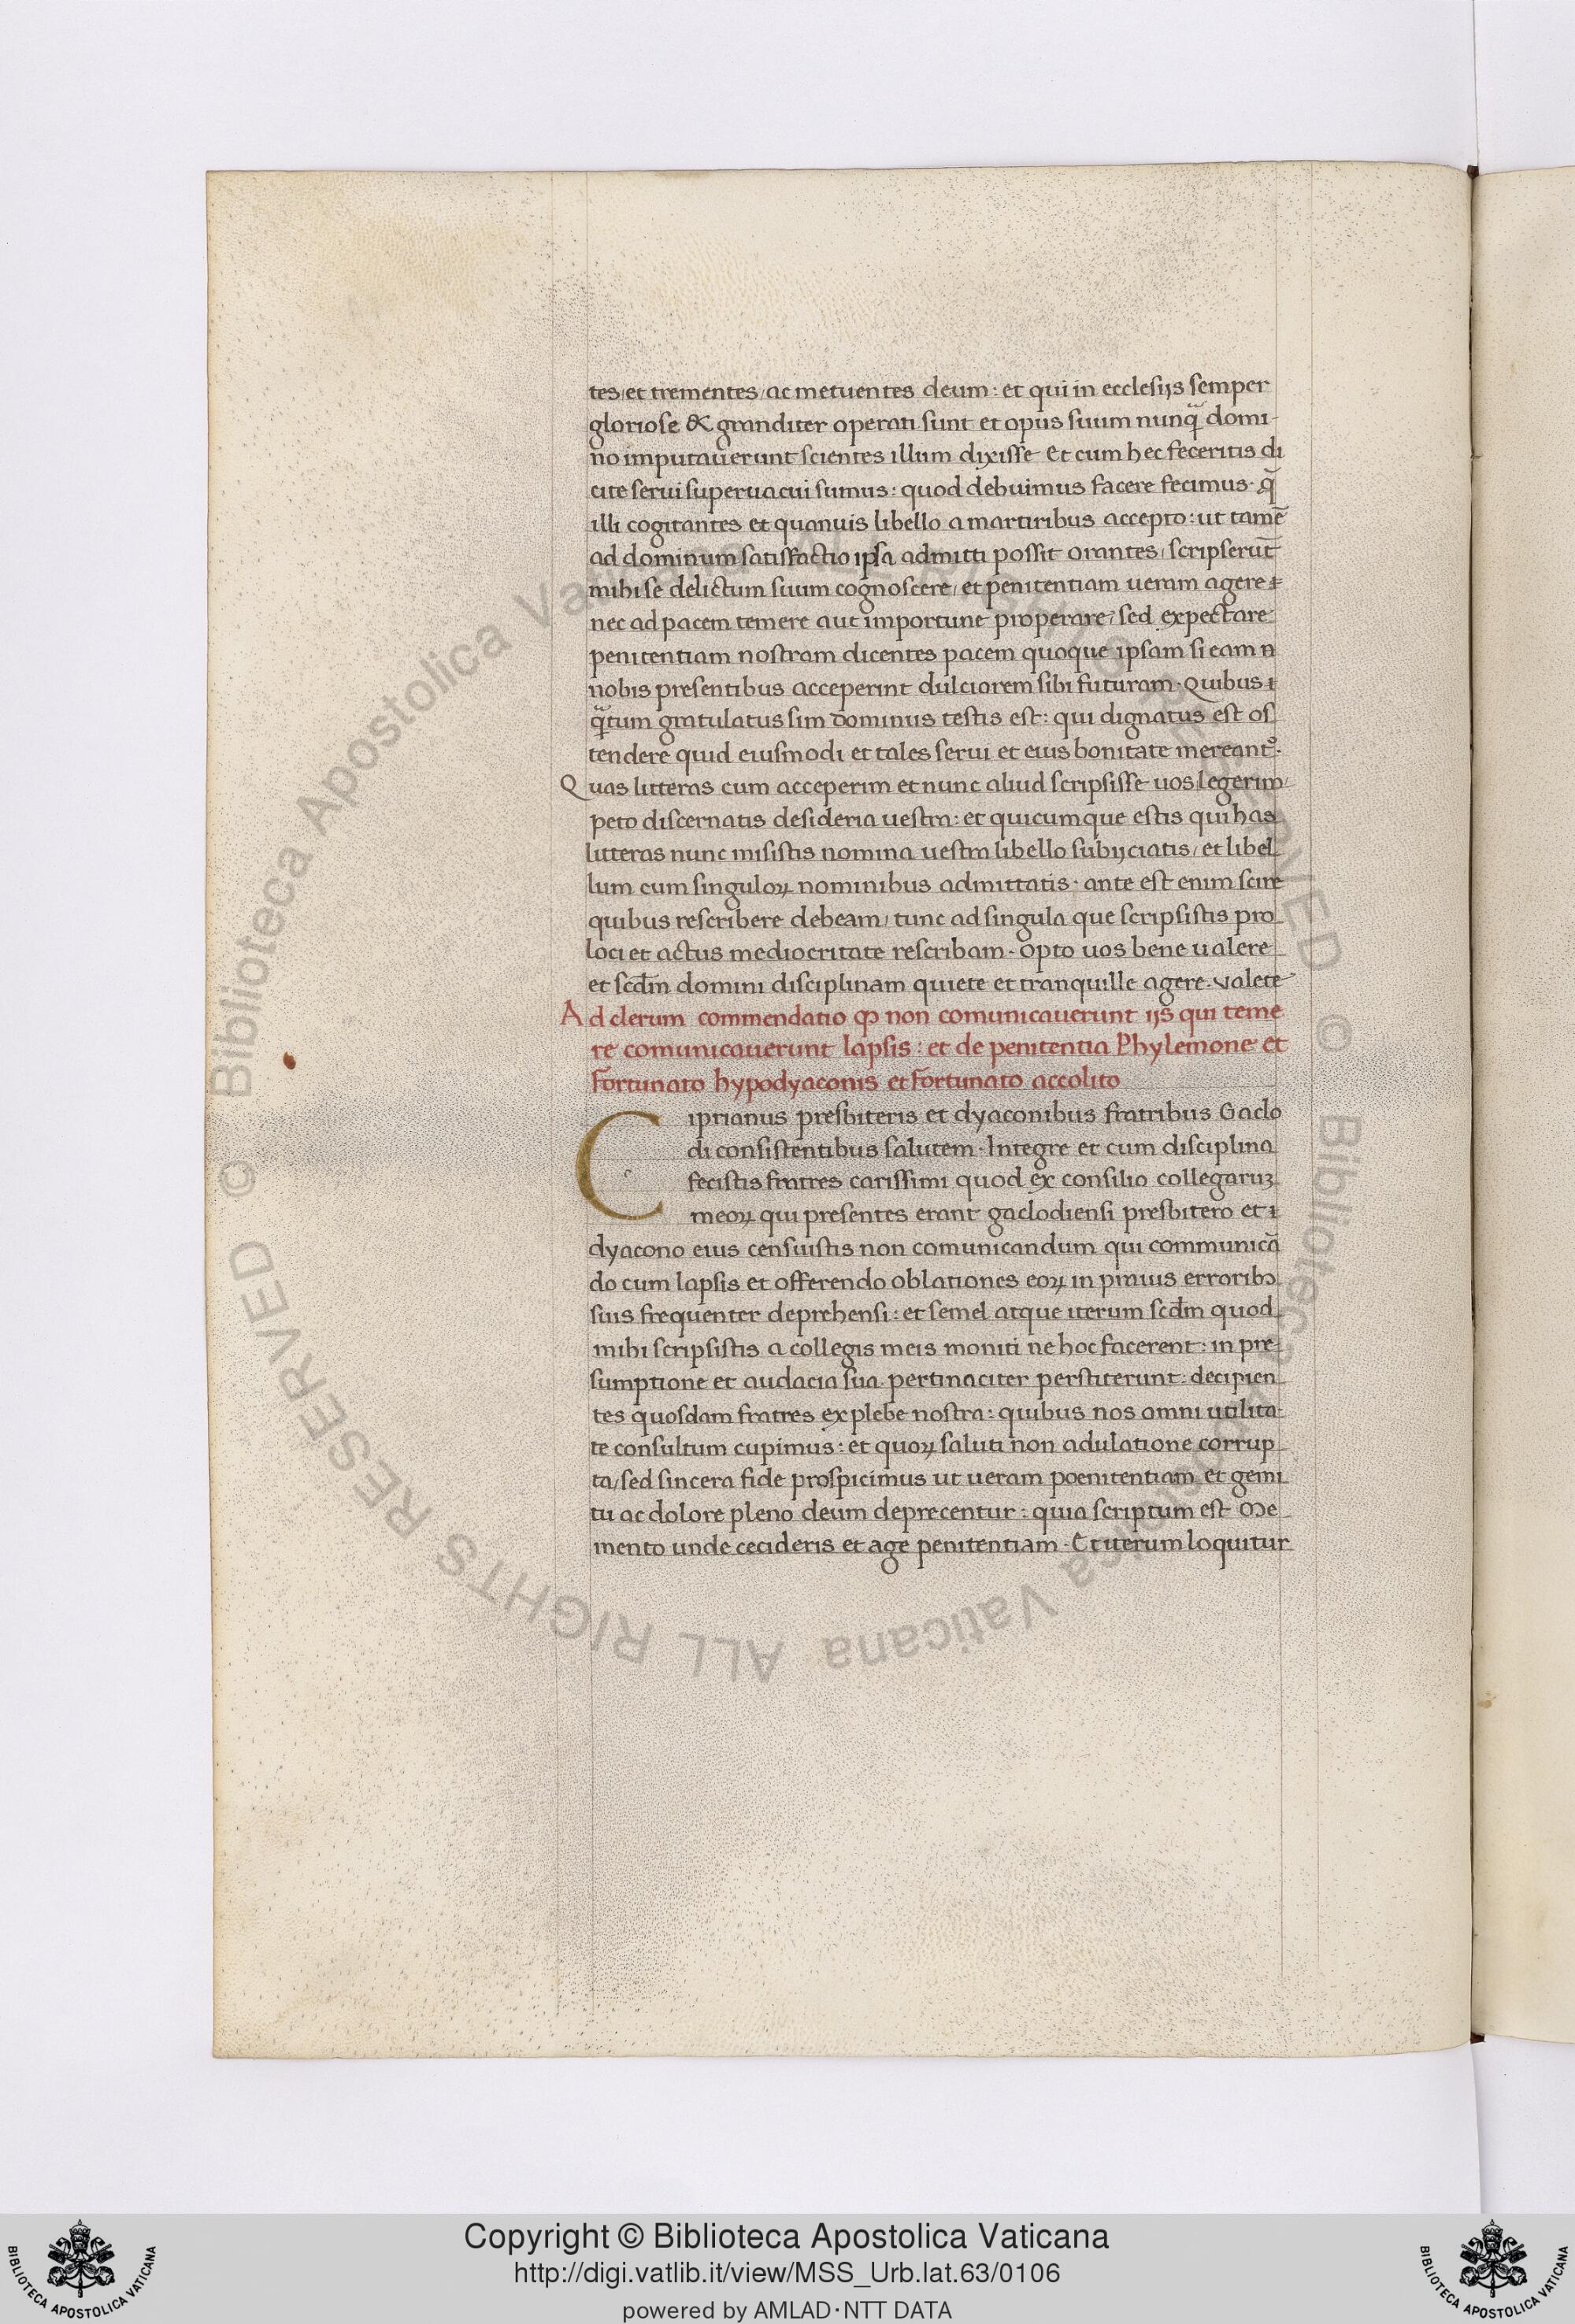 tes et trementes ac metuentes deum: et qui in ecclesijs semper
gloriose & granditer operati sunt et opus suum nunq̃ domi
no imputauerunt scientes illum dixisse Et cum hec feceritis di
cite serui superuacui sumus: quod debuimus facere fecimus. q̃
illi cogitantes et quanuis libello a martiribus accepto: ut tamē
ad dominum satisfactio ipsa admitti possit orantes, scripserūt
mihi se delictum suum cognoscere, et penitentiam ueram agere
nec ad pacem temere aut importune properare, sed expectare
penitentiam nostram dicentes pacem quoque ipsam si eam n
nobis presentibus acceperint dulciorem sibi futuram. Quibus ı
q̃tum gratulatus sim Dominus testis est: qui dignatus est os
tendere quid eiusmodi et tales serui et eius bonitate mereant̉.
Quas litteras cum acceperim et nunc aliud scripsisse uos legerim
peto discernatis desideria uestra: et quicumque estis qui has
litteras nunc misistis nomina uestra libello subijciatis, et libel
lum cum singuloꝝ nominibus admittatis. ante est enim scire
quibus rescribere debeam, tunc ad singula que scripsistis pro
loci et actus mediocritate rescribam. Opto uos bene ualere
et scd̄m domini disciplinam quiete et tranquille agere. valete
Ad clerum commendatio ꝙ non comunicauerunt ijs qui teme
re comunicauerunt lapsis: et de penitentia Phylemone et
Fortunato hypodyaconis et Fortunato accolito
Ciprianus presbiteris et dyaconibus fratribus Gaclo
di consistentibus salutem. Integre et cum disciplina
fecistis fratres carissimi quod ex consilio collegaruꝫ
meoꝝ qui presentes erant gaclodiensi presbitero et ı
dyacono eius censuistis non comunicandum qui communicā
do cum lapsis et offerendo oblationes eoꝝ in prauis erroribꝫ
suis frequenter deprehensi: et semel atque iterum scd̄m quod
mihi scripsistis a collegis meis moniti ne hoc facerent: in pre
sumptione et audacia sua pertinaciter perstiterunt: decipien
tes quosdam fratres ex plebe nostra: quibus nos omni utilita
te consultum cupimus: et quoꝝ saluti non adulatione corrup
ta, sed sincera fide prospicimus ut ueram poenitentiam et gemi
tu ac dolore pleno deum deprecentur: quia scriptum est Me
mento unde cecideris et age penitentiam. Et iterum loquitur
© Biblioteca Apostolica Vaticana ALL RIGHTS RESERVED © Biblioteca Apostolica Vaticana ALL RIGHTS RESERVED
BIBLIOTECA APOSTOLICA VATICANA
Copyright © Biblioteca Apostolica Vaticana
http://digi.vatlib.it/view/MSS_Urb.lat.63/0106
powered by AMLAD·NTT DATA
BIBLIOTECA APOSTOLICA VATICANA